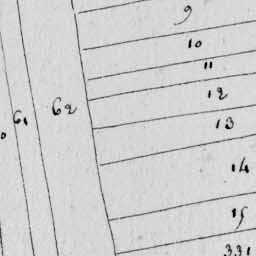 9
10
11
12
62
61
13
14
15
331